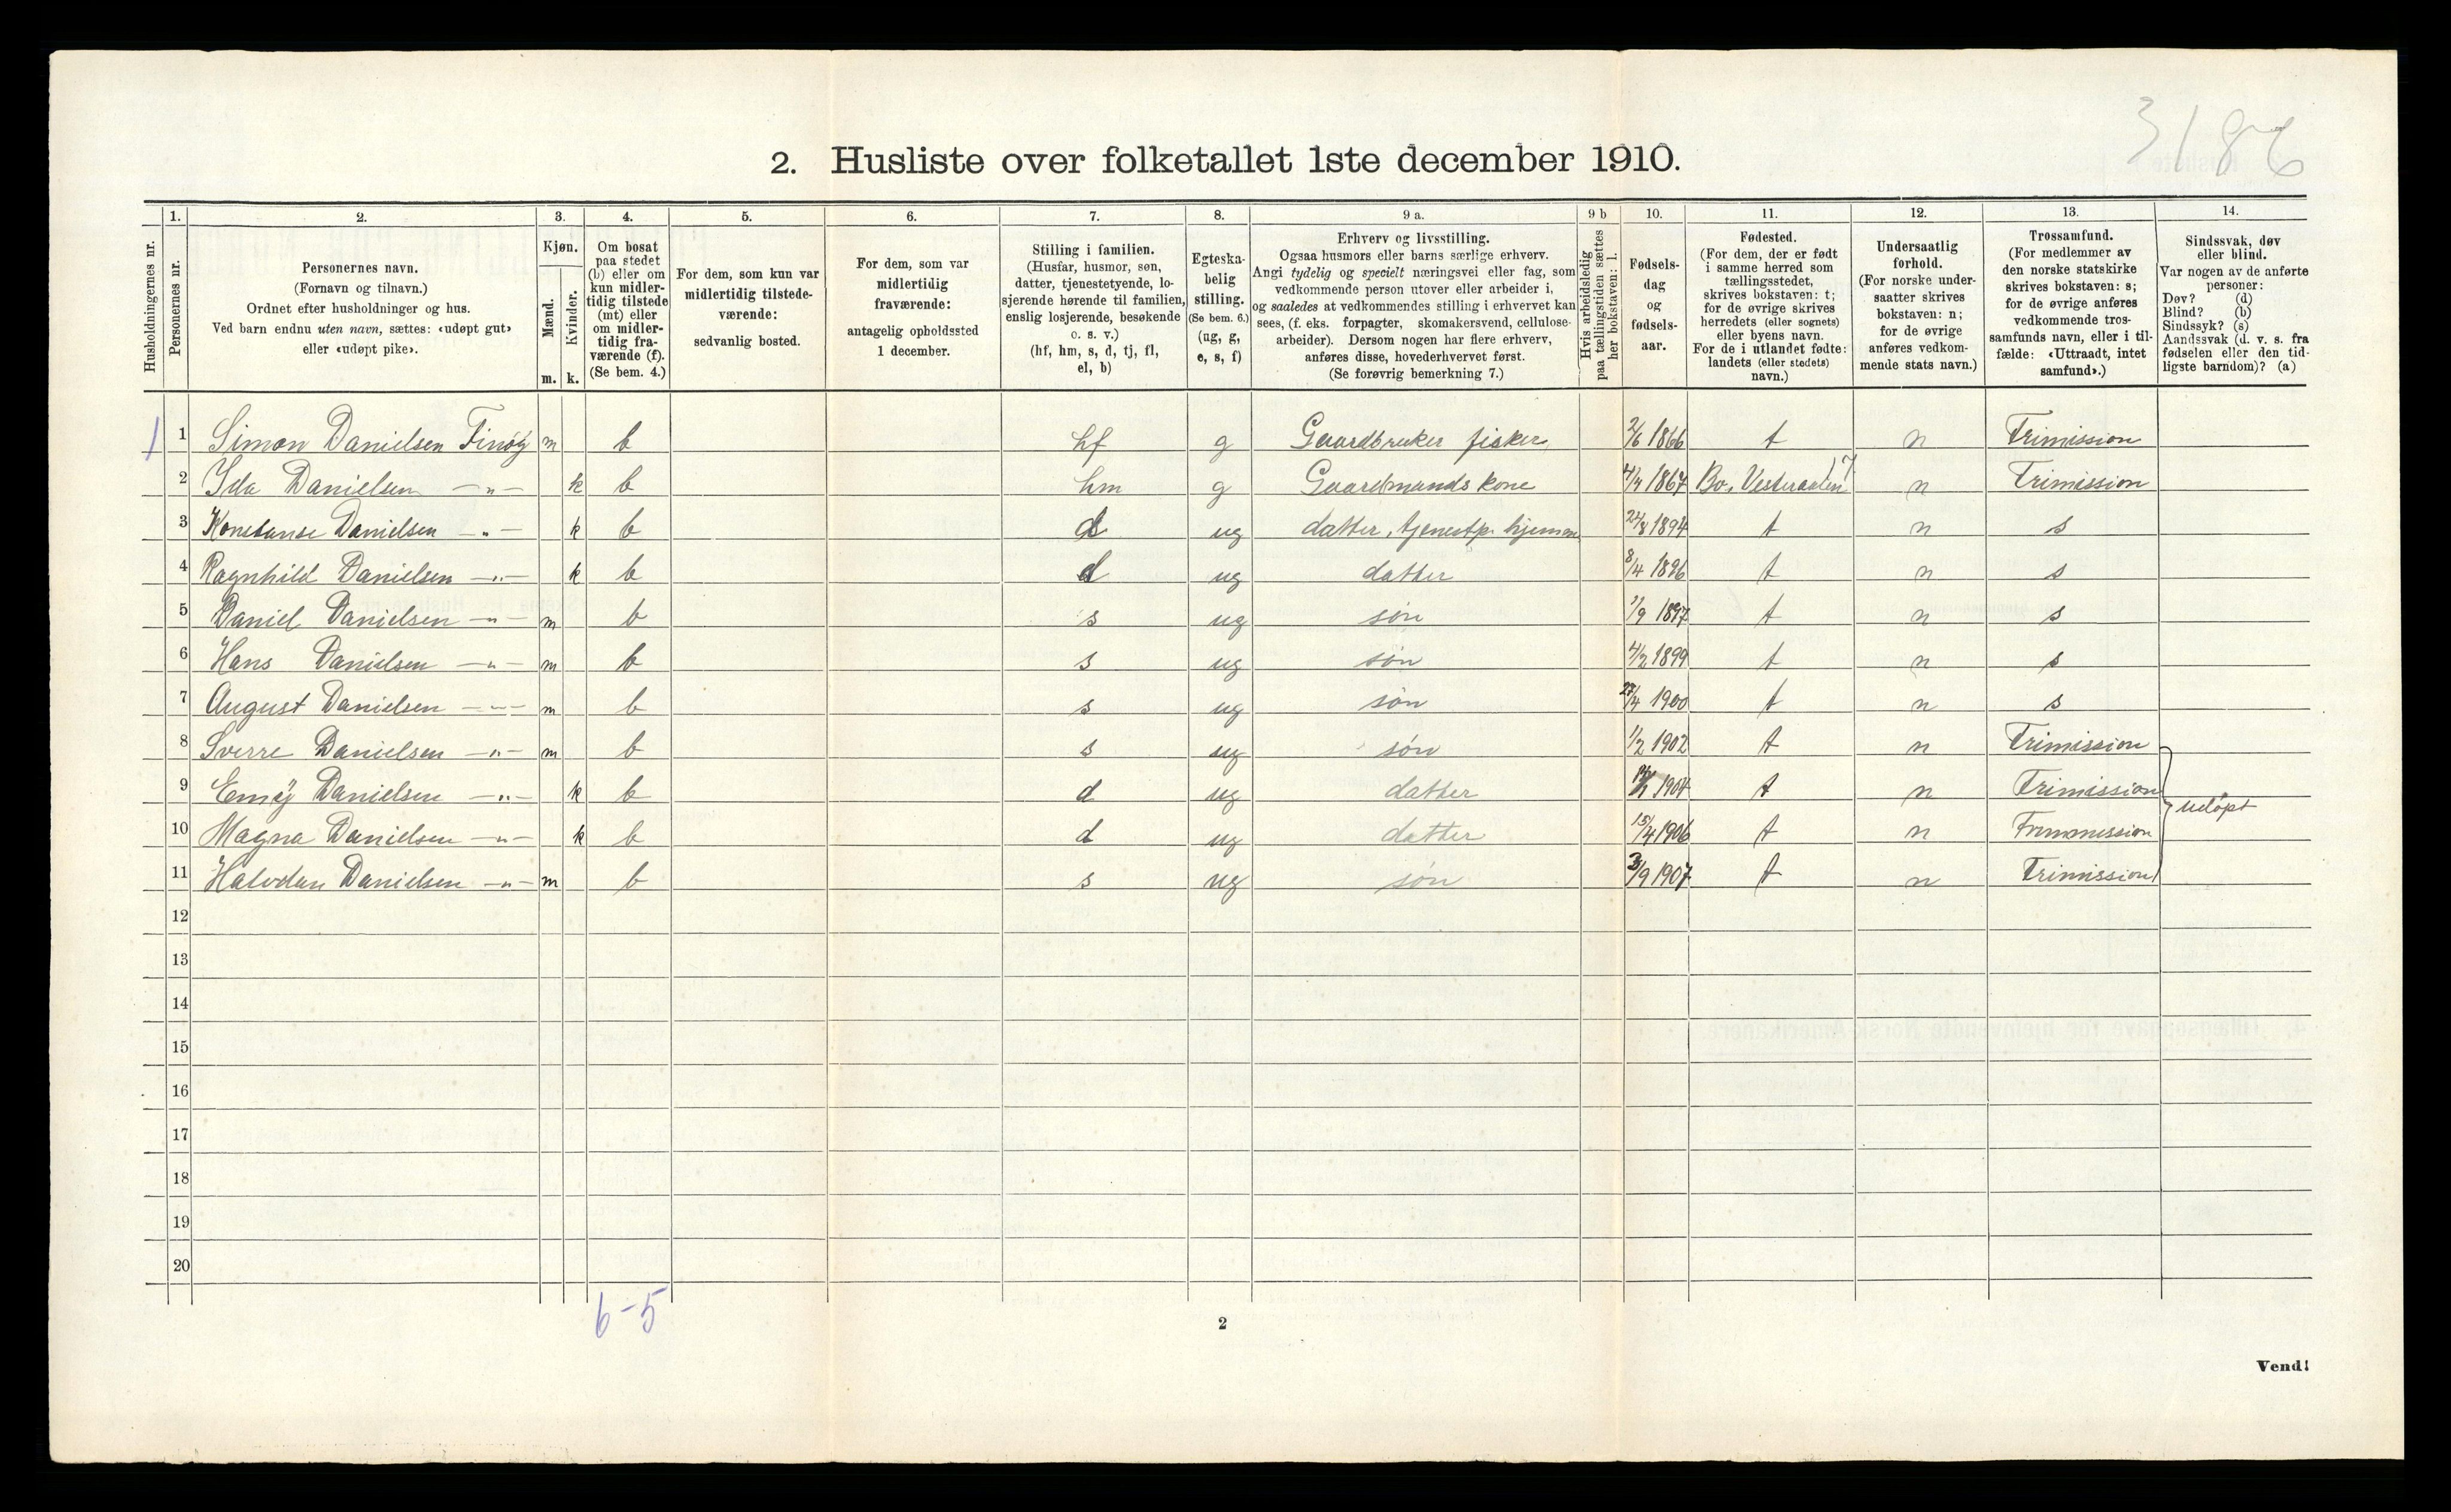 3186
2. Husliste over folketallet 1ste december 1910.
1. 2. 3. 4. 5. 6. 7. 8. 9 a. 9 b 10. 11. 12. 13. 14.
Husholdningernes nr.
Personernes nr.
Personernes navn.
(Fornavn og tilnavn.)
Ordnet efter husholdninger og hus.
Ved barn endnu uten navn, sættes: «udøpt gut»
eller «udøpt pike».
Kjøn.
Mænd.
Kvinder.
m. k.
Om bosat
paa stedet
(b) eller om
kun midler-
tidig tilstede
(mt) eller
om midler-
tidig fra-
værende (f).
(Se bem. 4.)
For dem, som kun var
midlertidig tilstede-
værende:
sedvanlig bosted.
For dem, som var
midlertidig
fraværende:
antagelig opholdssted
1 december.
Stilling i familien.
(Husfar, husmor, søn,
datter, tjenestetyende, lo-
sjerende hørende til familien,
enslig losjerende, besøkende
o. s. v.)
(hf, hm, s, d, tj, fl,
el, b)
Egteska-
belig
stilling.
(Se bem. 6.)
(ug, g,
e, s, f)
Erhverv og livsstilling.
Ogsaa husmors eller barns særlige erhverv.
Angi tydelig og specielt næringsvei eller fag, som
vedkommende person utover eller arbeider i,
og saaledes at vedkommendes stilling i erhvervet kan
sees, (f. eks. forpagter, skomakersvend, cellulose-
arbeider). Dersom nogen har flere erhverv,
anføres disse, hovederhvervet først.
(Se forøvrig bemerkning 7.)
Hvis arbeidsledig
paa tællingstiden sættes
her bokstaven: l.
Fødsels-
dag
og
fødsels-
aar.
Fødested.
(For dem, der er født
i samme herred som
tællingsstedet,
skrives bokstaven: t;
for de øvrige skrives
herredets (eller sognets)
eller byens navn.
For de i utlandet fødte:
landets (eller stedets)
navn.)
Undersaatlig
forhold.
(For norske under-
saatter skrives
bokstaven: n;
for de øvrige
anføres vedkom-
mende stats navn.)
Trossamfund.
(For medlemmer av
den norske statskirke
skrives bokstaven: s;
for de øvrige anføres
vedkommende tros-
samfunds navn, eller i til-
fælde: «Uttraadt, intet
samfund».)
Sindssvak, døv
eller blind.
Var nogen av de anførte
personer:
Døv? (d)
Blind? (b)
Sindssyk? (s)
Aandssvak (d. v. s. fra
fødselen eller den tid-
ligste barndom)? (a)
1 1 Simon Danielsen Finøy m b hf g Gaardbruker fisker 2/6 1866 t n Frimission
2 Ida Danielsen —"— k b hm g Gaardmands kone 4/4 1867 Bø, Vesteraalen 17 n Frimission
3 Konstanse Danielsen —"— k b d ug datter, tjenestp. hjemme 24/8 1894 t n s
4 Ragnhild Danielsen —"— k b d ug datter 8/4 1896 t n s
5 Daniel Danielsen —"— m b s ug søn 1/9 1897 t n s
6 Hans Danielsen —"— m b s ug søn 4/2 1899 t n s
7 August Danielsen —"— m b s ug søn 27/4 1900 t n s
8 Sverre Danielsen —"— m b s ug søn 1/2 1902 t n Frimission
9 Emøy Danielsen —"— k b d ug datter 1904 t n Frimission
udøpt
10 Magna Danielsen —"— k b d ug datter 15/4 1906 t n Frimission
11 Halvdan Danielsen —"— m b s ug søn 3/9 1907 t n Frimission
12
13
14
15
16
17
18
19
20
6-5
2
Vend!